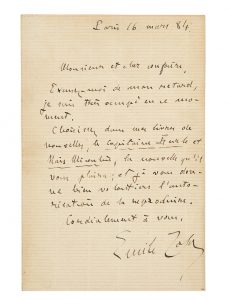 Paris 16 mars 84
Monsieur et cher confrère,
Excusez-moi de mon retard,
je suis très occupé en ce mo-
ment.
Choisissez dans mes livres de
nouvelles, le Capitaine Burle et
Naïs Micoulin, la nouvelle qu'il
vous plaira; et je vous don-
ne bien volontiers l'auto-
risation de la reproduire.
Cordialement à vous,
Emile Zola